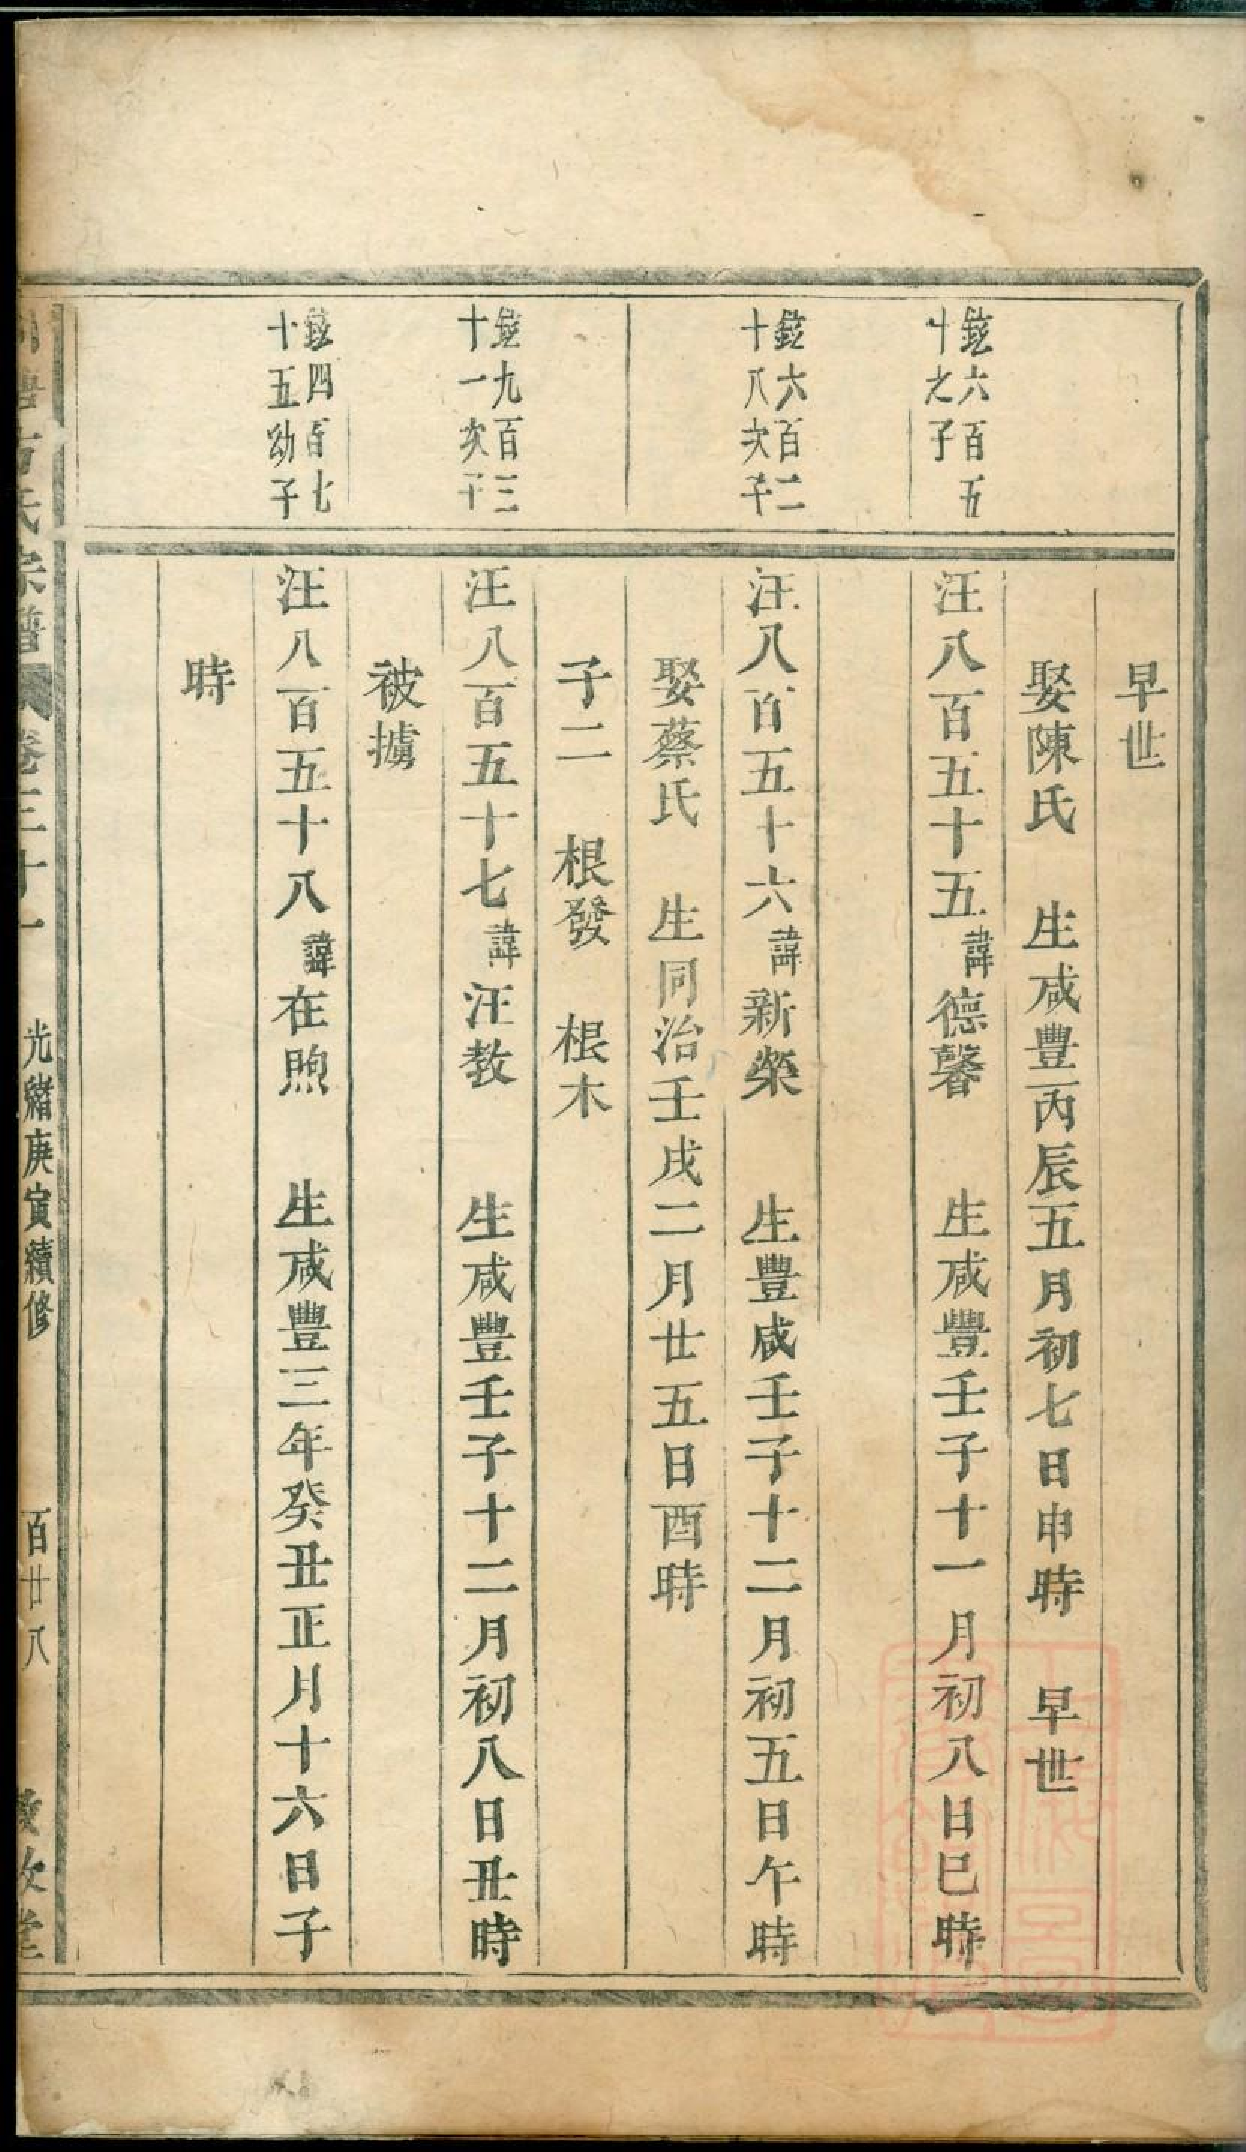 早世
娶陳氏 生咸豐丙辰五月初七日申時 早世
鉉六百五
十之子
汪八百五十五諱德馨 生咸豐壬子十一月初八日巳時
鉉六百二
十八次子
汪八百五十六諱新榮 生豐咸壬子十二月初五日午時
娶蔡氏 生同治壬戌二月廿五日酉時
子二 根發 根木
鉉九百三
十一次子
汪八百五十七諱汪教 生咸豐壬子十二月初八日丑時
被擄
鉉四百七
十五幼子
汪八百五十八諱在煦 生咸豐三年癸丑正月十六日子
時
氏宗譜 卷三十一 光緒庚寅續修 百廿八 敘堂